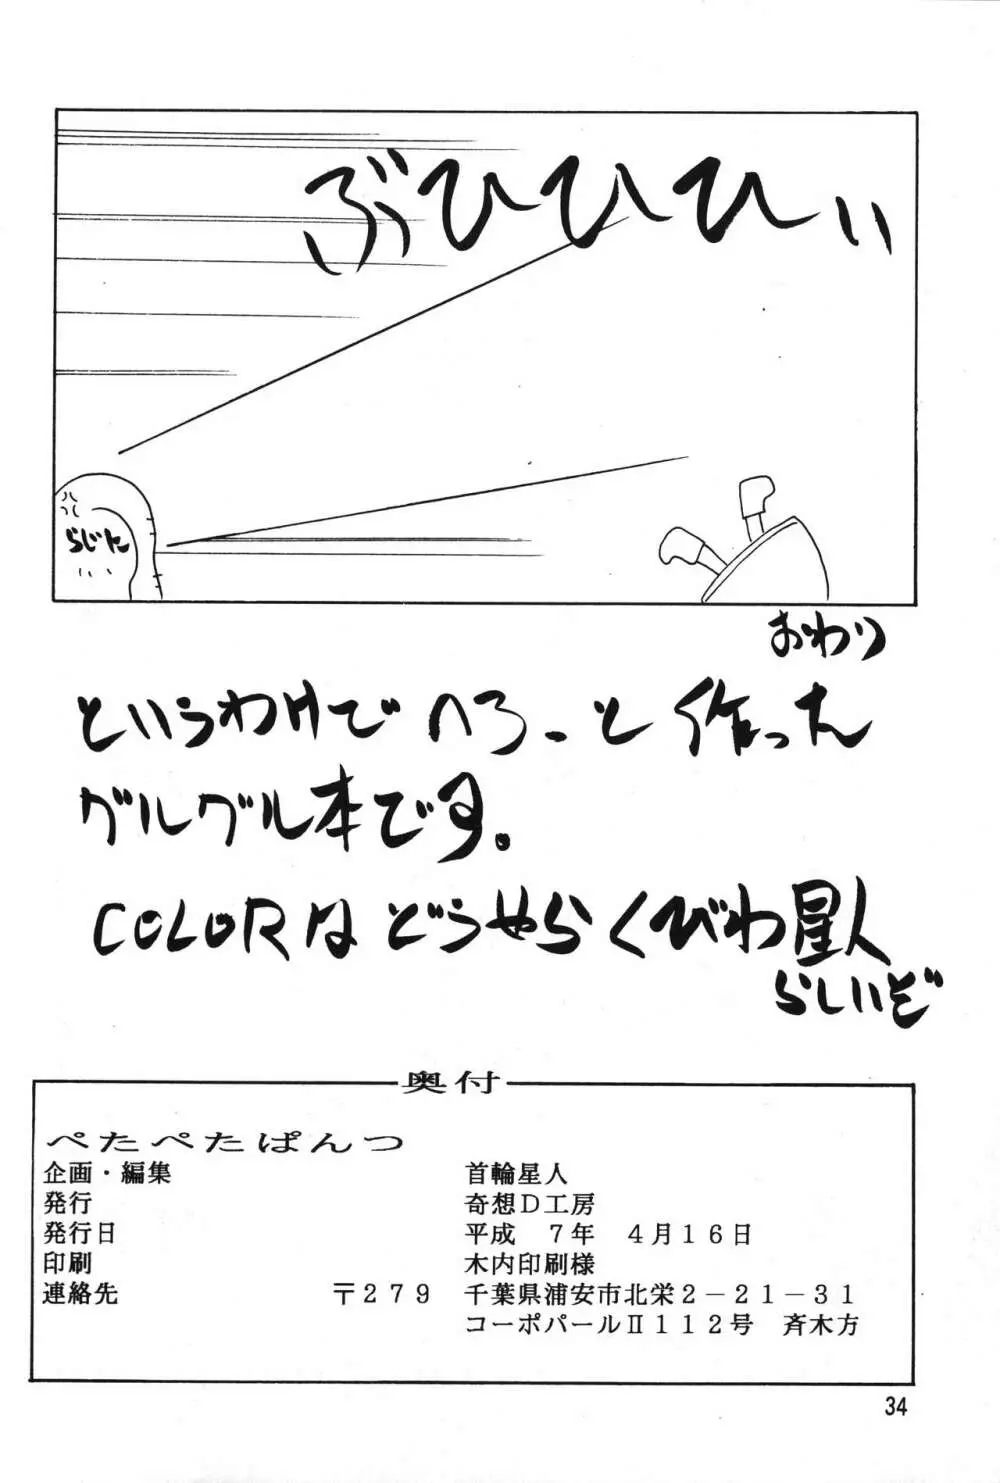 ぶひひひぃ
らじた
おわり
というわけで へろーと 作った
グルグル本です。
COLORは どうやら くびわ星人
らしいぞ
奥付
ぺたぺたぱんつ
企画・編集 首輪星人
発行 奇想D工房
発行日 平成 7年 4月16日
印刷 木内印刷様
連絡先 〒279 千葉県浦安市北栄2-21-31
コーポパールⅡ112号 斉木方
34